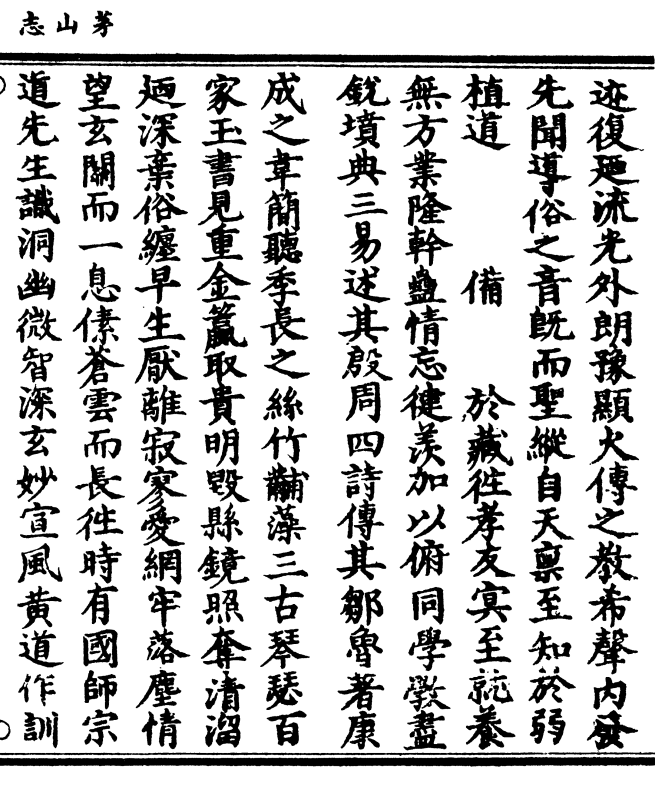 茅山志
迹復廻流光外朗豫顯火傳之教希聲内發
先聞導俗之音既而聖縱自天稟至知於弱
植道　備　於藏徃孝友冥至就養
無方業隆幹蠱情忘健羨加以俯同學斆盡
銳墳典三易述其殷周四詩傳其鄒魯著康
成之韋簡聽季長之絲竹黼藻三古琴瑟百
家玉書見重金籯取貴明毀縣鏡照奪清溜
廻深棄俗纏早生厭離寂寥愛網牢落塵情
望玄關而一息傃蒼雲而長徃時有國師宗
道先生識洞幽微智深玄妙宣風黄道作訓